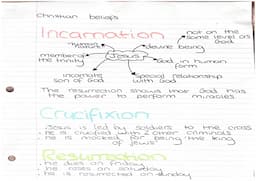 Christian beliefs
Incarnation
not on the
same level as
God
human
nature
devine being
Jesus
member of
the trinity
God in human
form
incarnate
son of God
special relationship
with God
The resurrection shows that God has
the power to perform miracles.
Crucifixion
Jesus is led by soldiers to the cross
he is crucified with 2 other criminals
he is mocked for being 'the king
of jews'
Resurrection
he dies on friday
he rises on saturday
he is resurrected on sunday